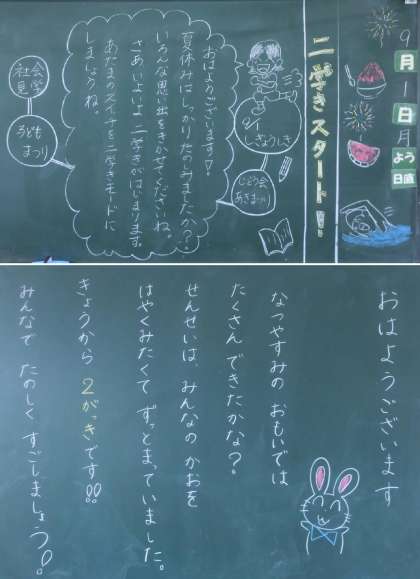 9月1日月よう日
日直
二学きスタート!
おはようございます!
夏休みは、しっかりたのしみましたか?
いろんな思い出をきかせてくださいね。
さあ、いよいよ二学きがはじまります。
あたまのスイチを二学きモードに
しましょうね。
9/1
しぎょうしき
じどう会
あきまつり
社会
見学
子ども
まつり
おはようございます
なつやすみの おもいでは
たくさん できたかな?
せんせいは、みんなの かおを
はやくみたくて ずっとまっていました。
きょうから 2がっきです!!
みんなで たのしく すごしましょう!